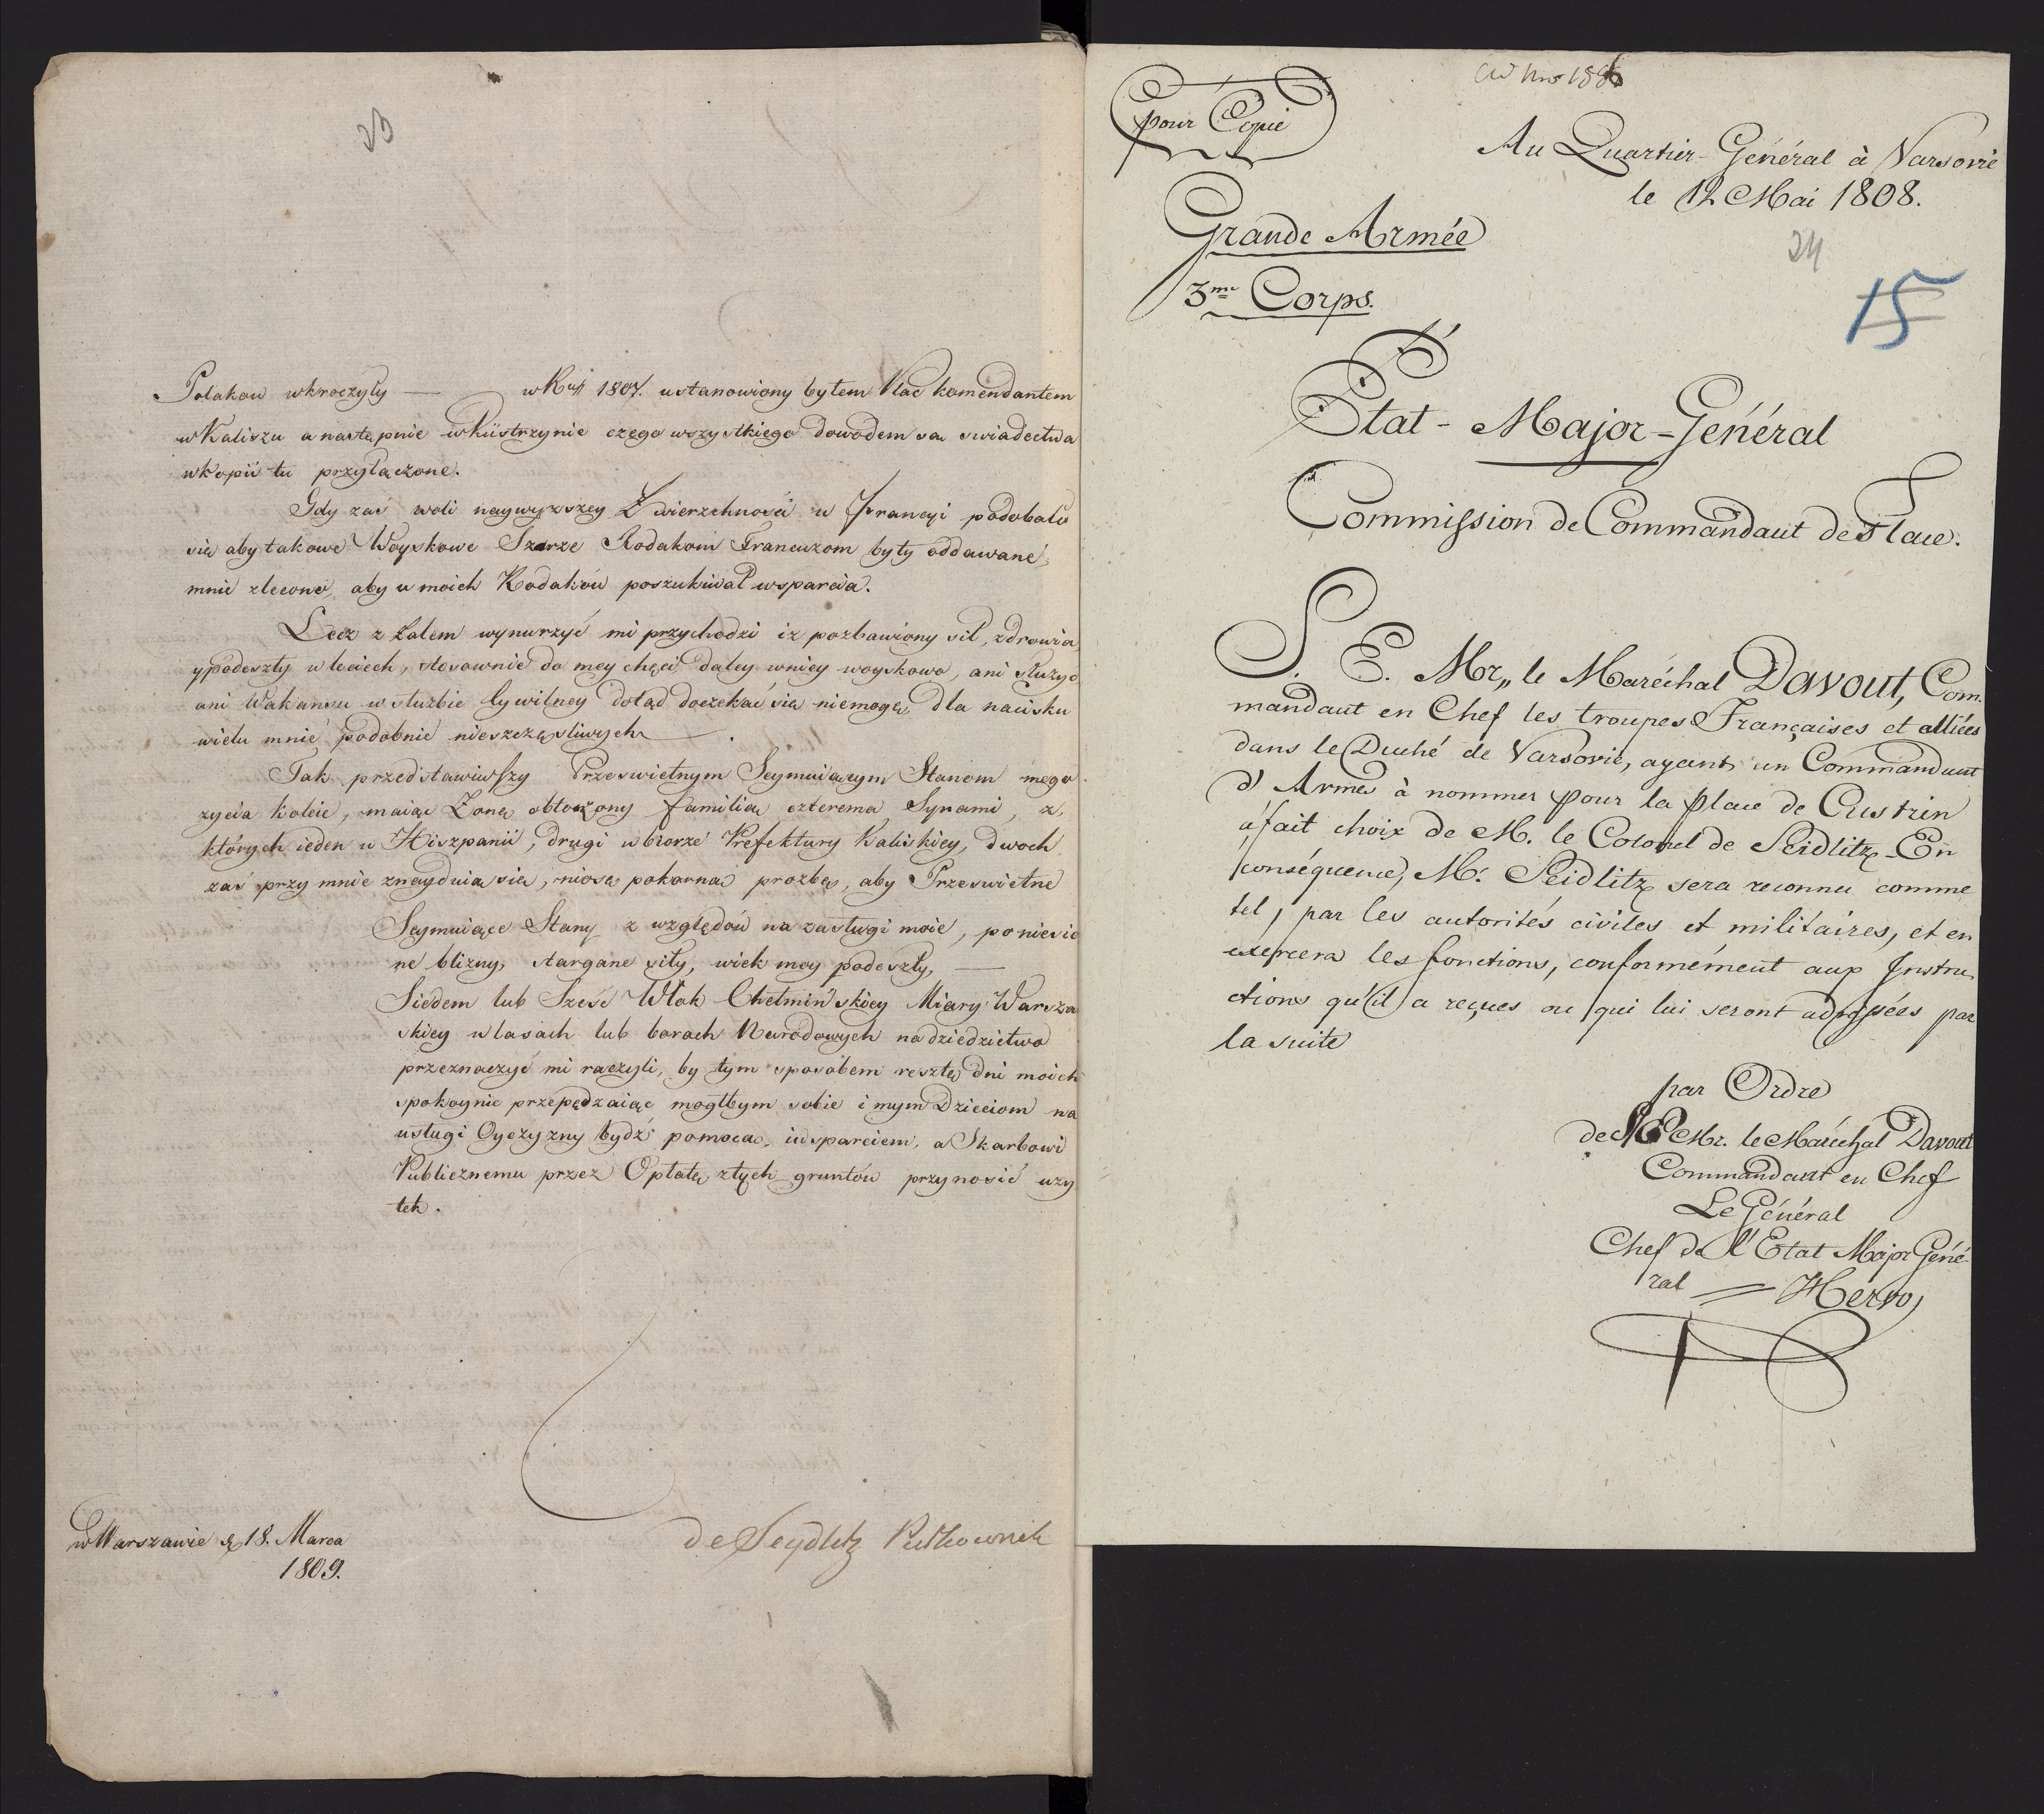 23
Polakow wkroczyły — w Roku 1807. ustanowiony byłem Plac komendantem
w Kaliszu a następnie w Küstrzynie czego wszystkiego dowodem są swiadectwa
w kopii tu przyłączone.
Gdy zaś woli naywyzszey Zwierzchności w Francyi podobało
się aby takowe Woyskowe Szarze Rodakom Francuzom były oddawane,
mnie zlecono, aby u moich Rodaków poszukiwał wsparcia.
Lecz z żalem wynurzyć mi przychodzi iz pozbawiony sił, zdrowia
y podeszły w leciech, stosownie do mey chęci daley w niey woyskowo, ani służyć
ani Wakansu w służbie Cywilney dotąd doczekać się niemogę, dla nacisku
wielu mnie podobnie nieszczęsliwych.
Tak przedstawiwszy Przeswietnym Seymuiącym Stanom mego
zycia koleie, maiąc Zonę obłożony familią czterema Synami, z
których ieden w Hiszpanii, drugi w biorze Prefektury Kaliskiey, dwoch
zaś przy mnie znayduią się, niosę pokorną prozbę, aby Przeswietne
Seymuiące Stany z względów na zasługi moie, poniesio
ne blizny, stargane siły, wiek moy podeszły, —
Siedem lub Sześć Włok Chełmińskiey Miary Warsza
skiey w lasach lub borach Narodowych na dziedzictwo
przeznaczyć mi raczyli, by tym sposobem resztę dni moich
spokoynie przepędzaiąc mogłbym sobie i mym Dzieciom na
usługi Oyczyzny bydź pomocą, i wsparciem, a Skarbowi
Publicznemu przez Opłatę złych gruntów przynosić uzy
tek.
w Warszawie d. 18. Marca
1809.
de Seydlitz Pułkownik
ad Nro 1886
pour Copie
Au Quartier-Général à Varsovie
le 12 Mai 1808.
24
15
Grande Armée
3me Corps.
Etat-Major-Général
Commission de Commandant de Place.
S. E. Mr,, le Maréchal Davout, Com-
mandant en Chef les troupes Françaises et alliées
dans le Duché de Varsovie, ayant un Commandant
d'Armes à nommer pour la place de Custrin
a fait choix de M. le Colonel de Seidlitz En
conséquence, M. Seidlitz sera reconnu comme
tel, par les autorités civiles et militaires, et en
exercera les fonctions, conformément aux Instru-
ctions qu'il a reçues ou qui lui seront adressées par
la suite
par Ordre
de S E Mr. le Maréchal Davout
Commandant en Chef
Le Général
Chef de l'Etat Major Géné-
ral = Hervo